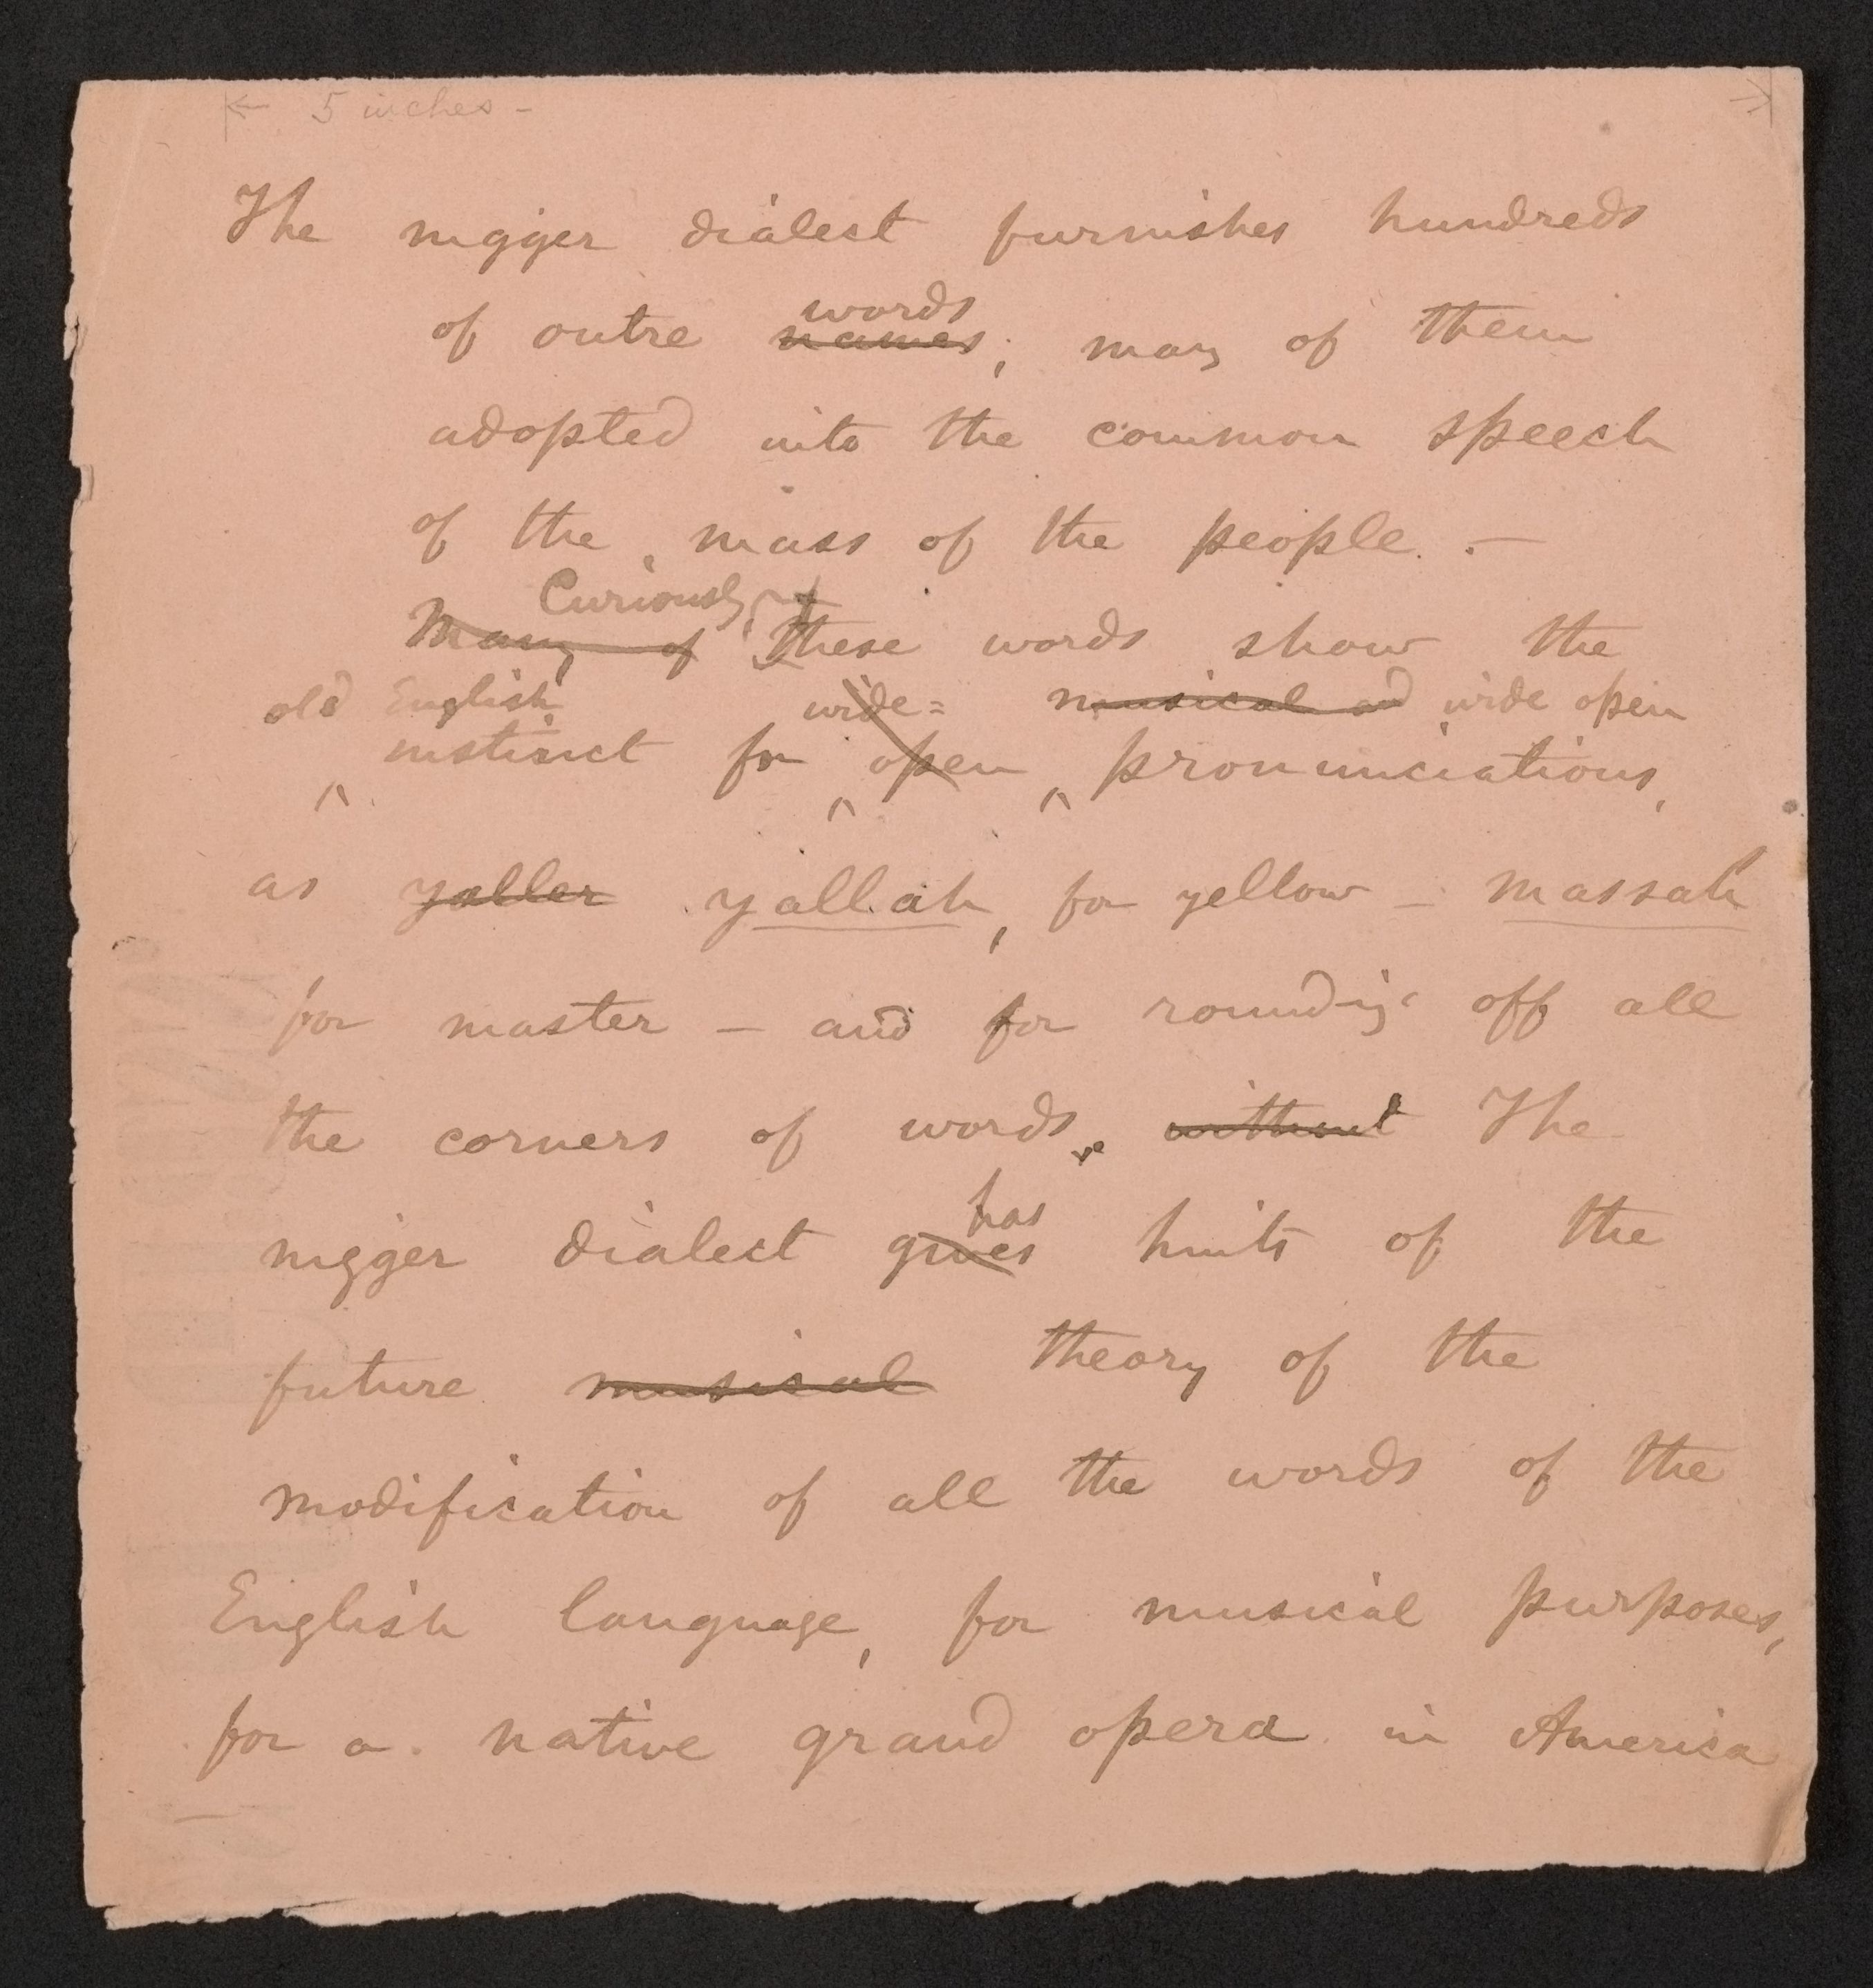 5 inches -
The nigger dialect furnishes hundreds
words
of outre names; many of them
adopted into the common speech
of the mass of the people. —
Curiously,
Many of these words show the
old English wide= musical and wide open
instinct for open pronunciations,
as yaller yallah, for yellow — massah
for master — and for rounding off all
the corners of words. without The
has
nigger dialect gives hints of the
future musical theory of the
modification of all the words of the
English language, for musical purposes,
for a native grand opera in America